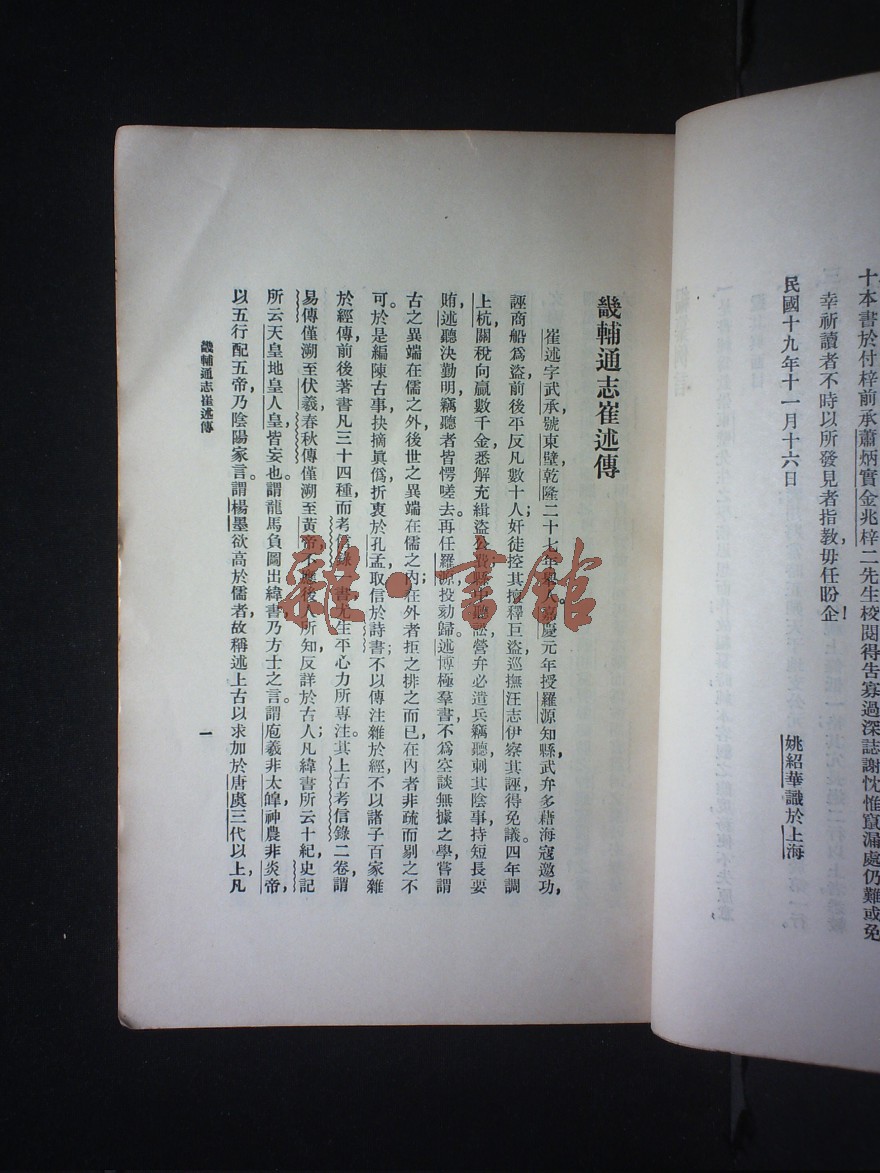 十本書於付梓前承蕭炳實金兆梓二先生校閱得告寡過深誌謝忱惟竄漏處仍難或免
幸祈讀者不時以所發見者指教毋任盼企!
民國十九年十一月十六日
姚紹華識於上海
畿輔通志崔述傳
崔述字武承,號東壁,乾隆二十七年舉人。嘉慶元年授羅源知縣,武弁多藉海寇邀功,
誣商船爲盜,前後平反凡數十人;奸徒控其擅釋巨盜,巡撫汪志伊察其誣,得免議。四年調
上杭,關稅向贏數千金,悉解充緝盜公費。縣中聽訟,營弁必遣兵竊聽,刺其陰事,持短長要
賄,述聽決勤明,竊聽者皆愕嗟去。再任羅源,投劾歸。述博極羣書,不爲空談無據之學,嘗謂
古之異端在儒之外,後世之異端在儒之內;在外者拒之排之而已,在內者非疏而剔之不
可。於是編陳古事,抉摘眞僞,折衷於孔孟,取信於詩書;不以傳注雜於經,不以諸子百家雜
於經傳,前後著書凡三十四種,而考信錄一書尤生平心力所專注。其上古考信錄二卷,謂
易傳僅溯至伏羲,春秋傳僅溯至黃帝,不應後人所知反詳於古人;凡緯書所云十紀,史記
所云天皇地皇人皇,皆妄也。謂龍馬負圖出緯書,乃方士之言。謂庖羲非太皥,神農非炎帝,
以五行配五帝,乃陰陽家言。謂楊墨欲高於儒者,故稱述上古以求加於唐虞三代以上,凡
畿輔通志崔述傳
一
雜·書館